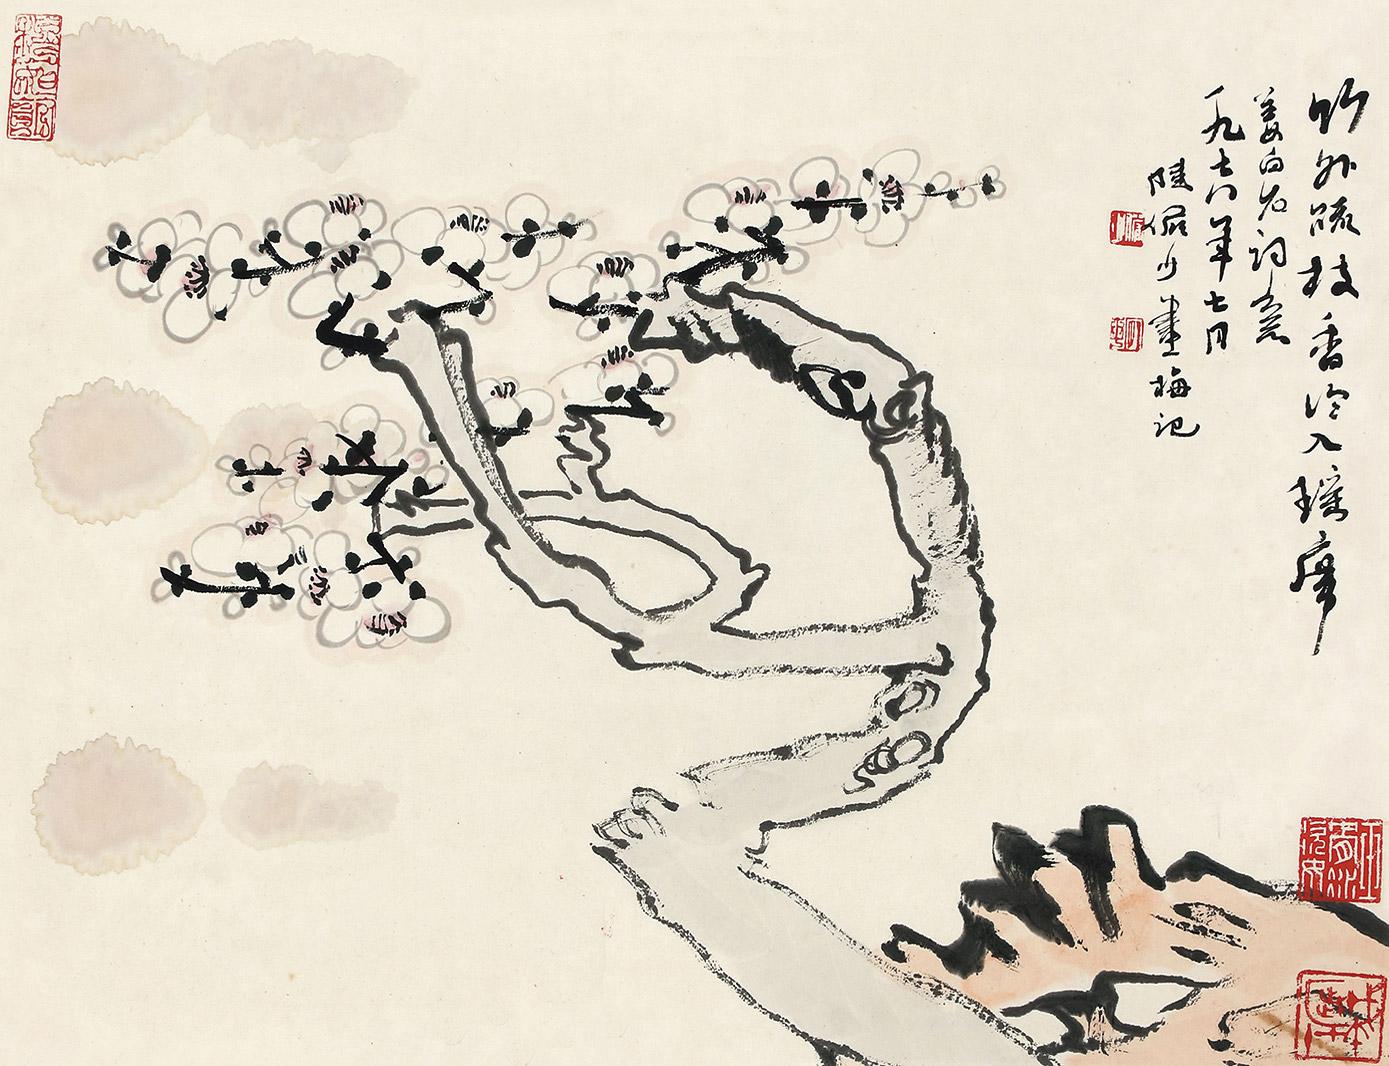 竹外疏枝香冷入瑶席
姜白石词意
一九七八年七月
陸儼少畫梅记